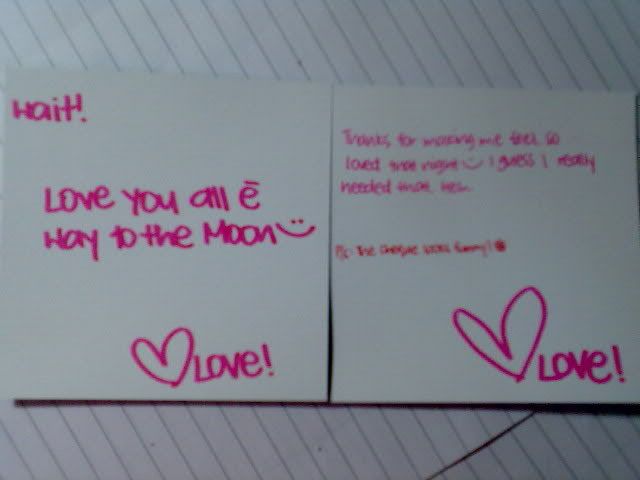 Wait!
Love You all ē
Way to the Moon
Love!
Thanks for making me feel so
loved that night I guess I really
needed that.
Love!